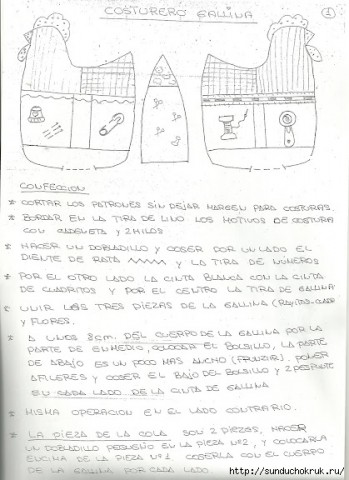 COSTURERO GALLINA
1
CONFECCION
* CORTAR LOS PATRONES SIN DEJAR MARGEN PARA COSTURAS.
* BORDAR EN LA TIRA DE LINO LOS MOTIVOS DE COSTURA
CON CADENETA Y 2 HILOS
* HACER UN DOBLADILLO Y COSER POR UN LADO EL
DIENTE DE RATA Y LA TIRA DE NUMEROS
* POR EL OTRO LADO LA CINTA BLANCA CON LA CINTA
DE CUADRITOS Y POR EL CENTRO LA TIRA DE GALLINA
* UNIR LAS TRES PIEZAS DE LA GALLINA
Y FLORES.
* A UNOS 8 CM. DEL CUERPO DE LA GALLINA POR LA
PARTE DE EN MEDIO, COLOCAR EL BOLSILLO, LA PARTE
DE ABAJO ES UN POCO MAS ANCHO (FRUNCIR). PONER
ALFILERES Y COSER EL BAJO DEL BOLSILLO Y 2 PESPUNTE
EN CADA LADO DE LA CINTA DE GALLINA
* MISMA OPERACION EN EL LADO CONTRARIO.
* LA PIEZA DE LA COLA SON 2 PIEZAS, HACER
UN DOBLADILLO PEQUEÑO EN LA PIEZA Nº2, Y COLOCARLA
ENCIMA DE LA PIEZA Nº1 COSERLA CON EL CUERPO
DE LA GALLINA POR CADA LADO
http://sunduchokruk.ru/